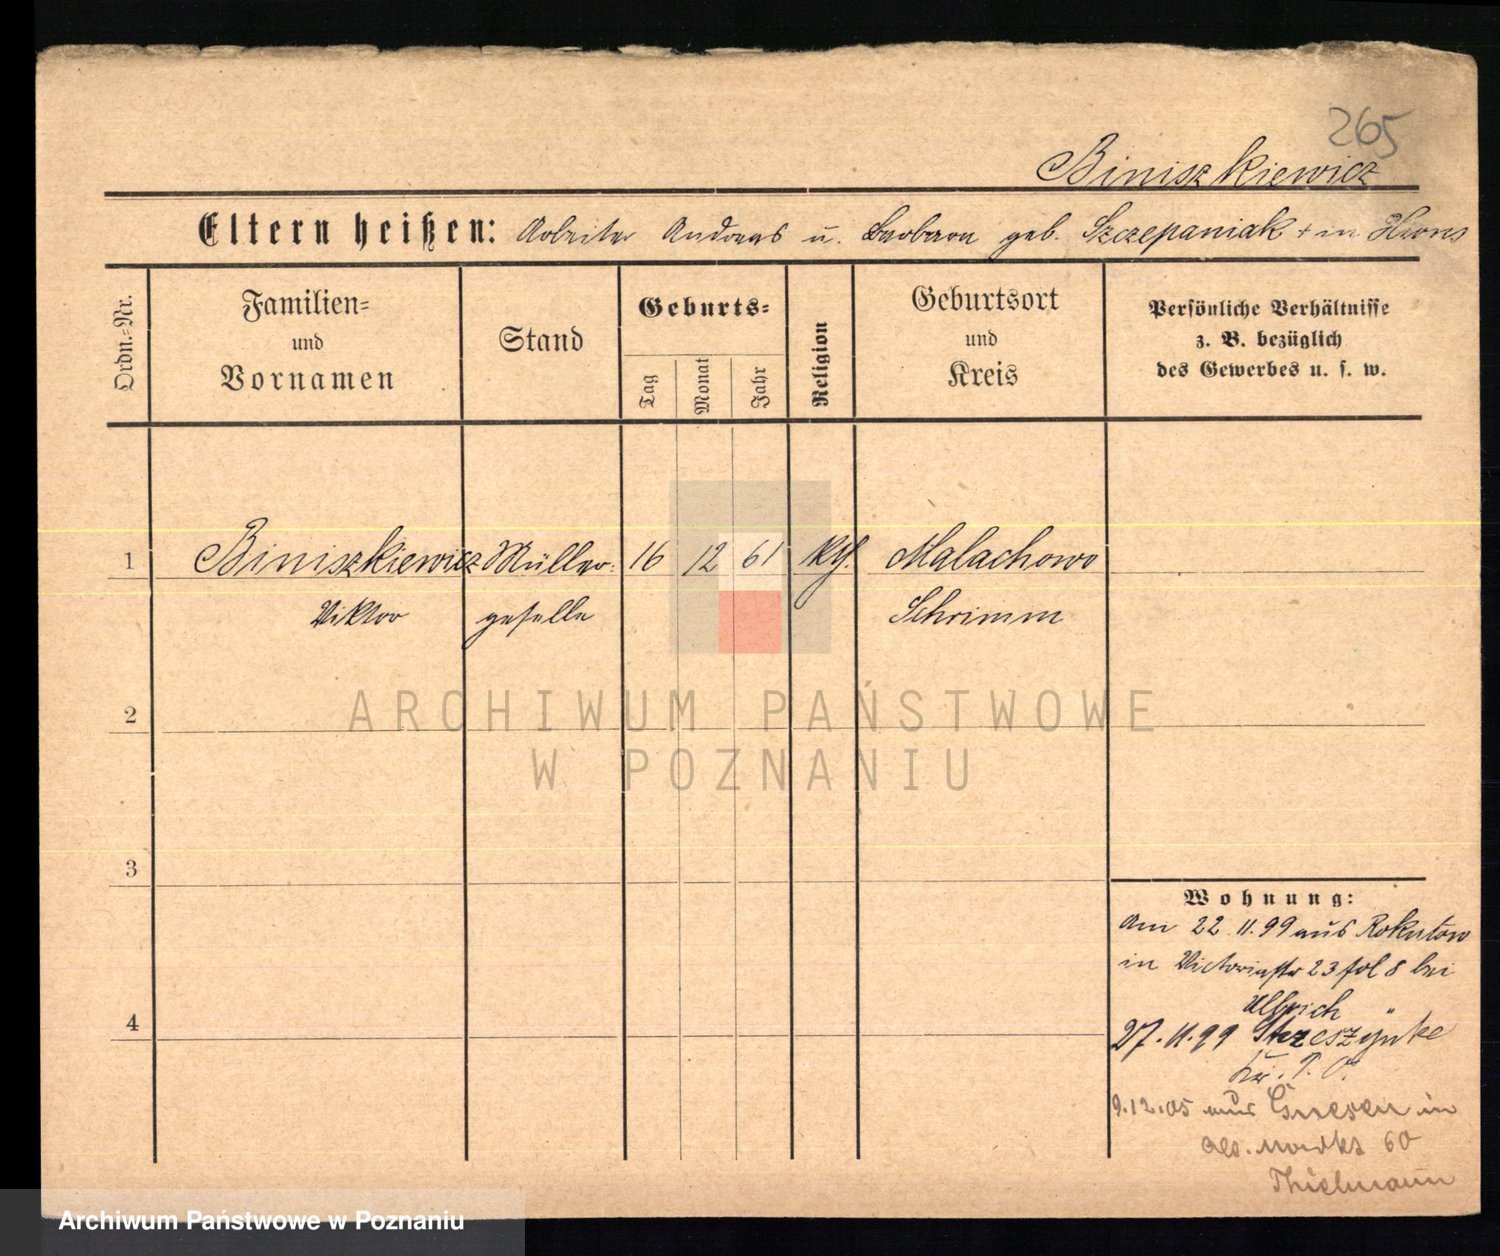 265
Biniszkiewicz
Eltern heißen: Arbeiter Andreas u. Barbara geb. Szczepaniak + in Xions
Ordn.=Nr.
Familien=
und
Vornamen
Stand
Geburts=
Tag
Monat
Jahr
Religion
Geburtsort
und
Kreis
Persönliche Verhältnisse
z. B. bezüglich
des Gewerbes u. s. w.
1 Biniszkiewicz Müller= 16 12 61 kth. Malachowo
Viktor geselle Schrimm
2
3
4
ARCHIWUM PAŃSTWOWE
W POZNANIU
Wohnung:
Am 22.11.99 aus Rokutow
in Victoriastr 23 fol 8 bei
Ullrich
27.11.99
Kr. P. O.
9.12.05 aus Gnesen in
60
Thielmann
Archiwum Państwowe w Poznaniu